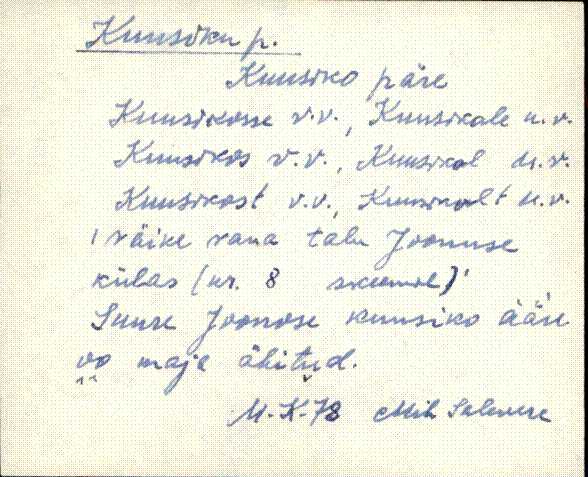 Kuusiku p.
Kuusiko päre
Kuusikosse v.v., Kuusikale u.v.
Kuusikos v.v., Kuusikal u.v.
Kuusikost v.v., Kuusikalt u.v.
'väike vana talu Joonuse
külas (nr. 8 skeemil)'
Suure Joonose kuusiko ääre
oo maja ähitud.
M.K.78